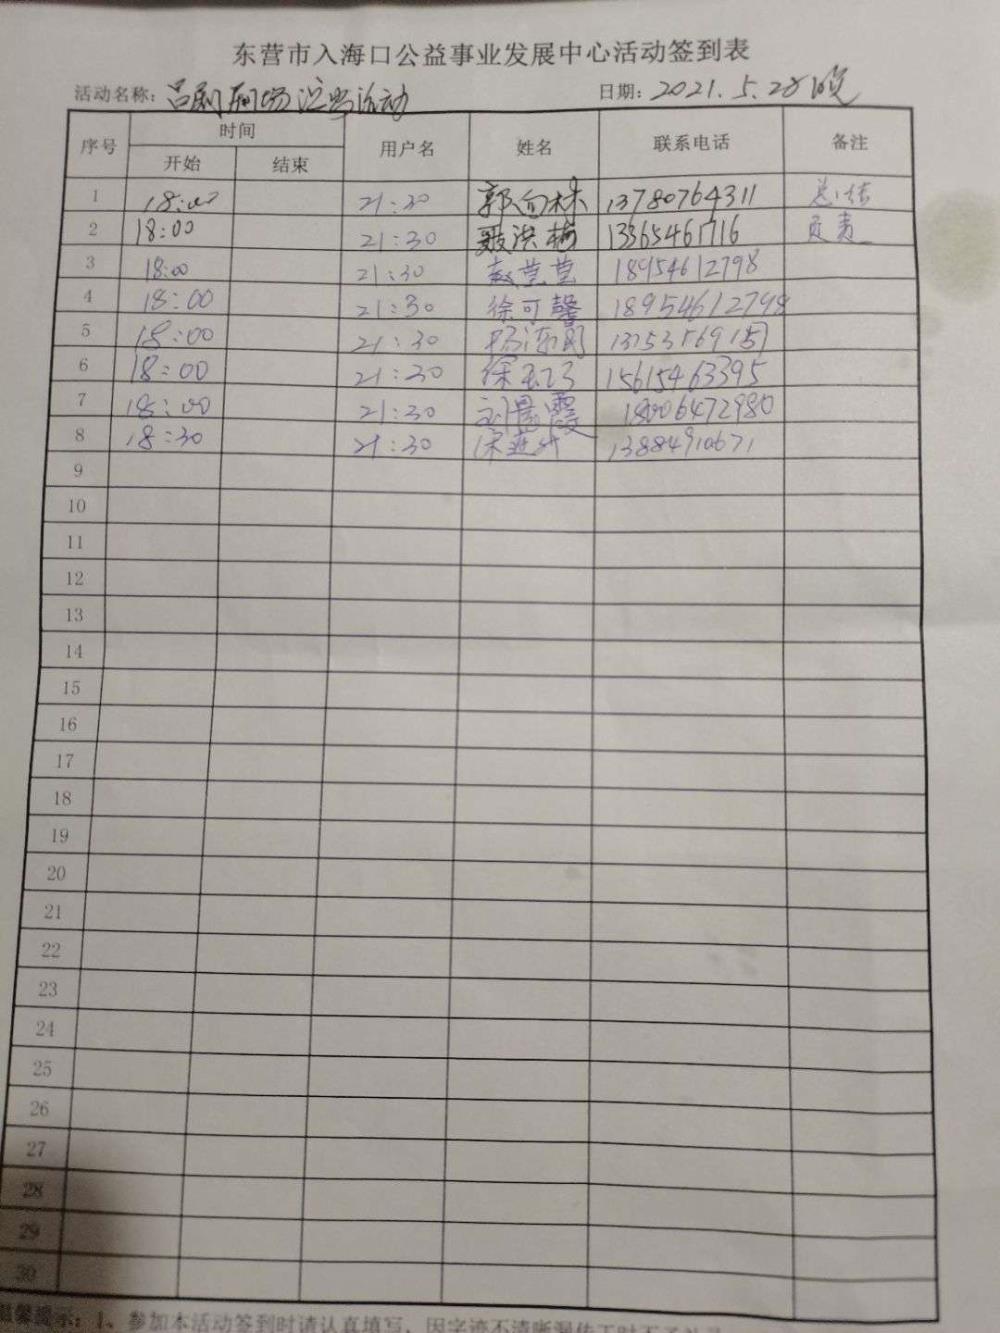 东营市入海口公益事业发展中心活动签到表
活动名称: 吕剧 活动 日期: 2021.5.28晚
序号 时间 用户名 姓名 联系电话 备注
开始 结束
1 18:00 21:30 郭向林 13780764311 总结
2 18:00 21:30 聂洪梅 13365461716 负责
3 18:00 21:30 18954612798
4 18:00 21:30 徐可馨 18954612798
5 18:00 21:30
6 18:00 21:30 15615463395
7 18:00 21:30 18006472980
8 18:30 21:30 13884910671
9
10
11
12
13
14
15
16
17
18
19
20
21
22
23
24
25
26
27
28
29
30
温馨提示: 1、参加本活动签到时请认真填写,因字迹不清晰